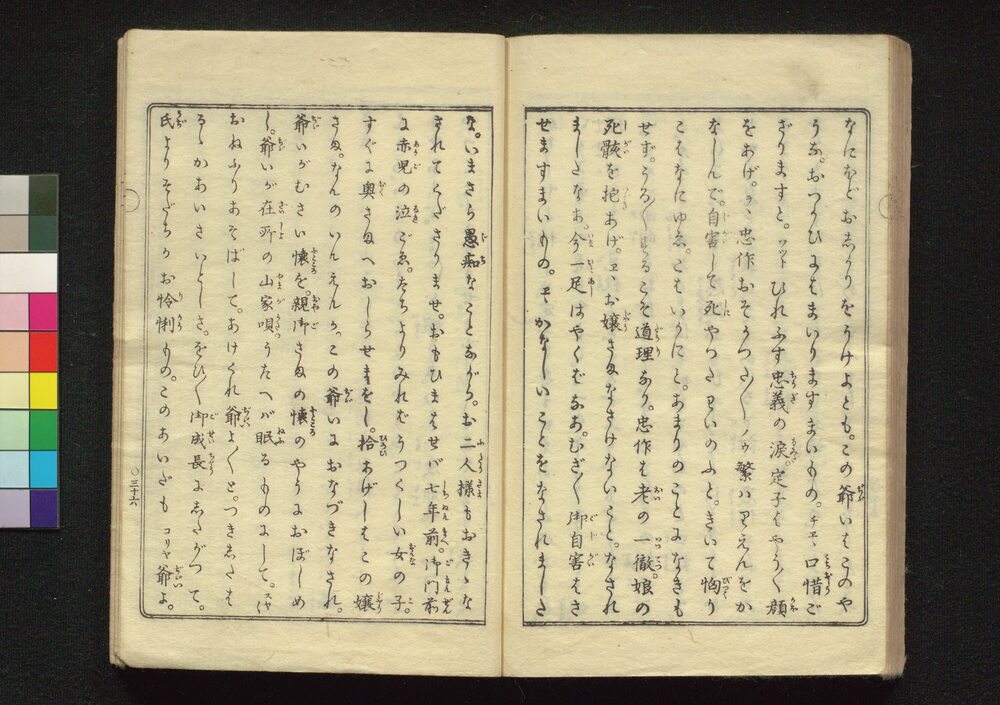 なになどおしかりをうけよとも。この爺いはこのや
うな。おつかひにはまいりますまいもの。チエヽ口惜ご
ざりますと。ワツトひれふす忠義の涙。定子はやう〳〵顔
をあげ。ヲヽ忠作おそかつた〳〵ノウ繁ハりえんをか
なしんで。自害して死やつたわいのふと。きいて恟り
こはなにゆゑ。こはいかにと。あまりのことになきも
せず。うろ〳〵するこそ道理なり。忠作も老の一徹娘の
死骸を抱あげ。エヽお嬢さまなさけないこと。なされ
ましたなあ。今一足はやくばなあ。むざ〳〵御自害はさ
せますまいもの。エヽかなしいことをなされました
な。いまさら愚痴なことながら。お二人様もおきゝな
されてくださりませ。おもひまはせバ七年前。御門前
に赤児の泣ごゑ。たちよりみれバうつくしい女の子。
すぐに奥さまへおしらせまをし。拾あげしはこの嬢
さま。なんのいんえんか。この爺いにおなづきなされ。
爺いがむさい懐を。親御さまの懐のやうにおぼしめ
し。爺いが在所の山家唄。うたへバ眠るものにして。スヤ〳〵
おねふりあそばして。あけくれ爺よ〳〵と。つきしたは
るゝかあいさいとしさ。をひ〳〵御成長にしたがつて。
氏よりそだちかお怜悧もの。このあいだも コリヤ爺よ。
〇三十六